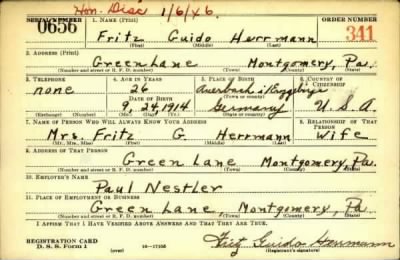 Hon. Disc 1/6/46.
SERIAL NUMBER 1. NAME (Print) ORDER NUMBER
0656 Fritz Guido Herrmann 341
(First) (Middle) (Last)
2. ADDRESS (Print)
Green Lane Montgomery, Pa.
(Number and street or R. F. D. number) (Town) (County) (State)
3. TELEPHONE 4. AGE IN YEARS 5. PLACE OF BIRTH 6. COUNTRY OF CITIZENSHIP
none 26 Auerbach i/Erzgebirge
DATE OF BIRTH (Town or county)
9, 24, 1914 Germany U.S.A.
(Exchange) (Number) (Mo.) (Day) (Yr.) (State or country)
7. NAME OF PERSON WHO WILL ALWAYS KNOW YOUR ADDRESS 8. RELATIONSHIP OF THAT PERSON
Mrs. Fritz G. Herrmann Wife
(Mr., Mrs., Miss) (First) (Middle) (Last)
9. ADDRESS OF THAT PERSON
Green Lane Montgomery Pa.
(Number and street or R. F. D. number) (Town) (County) (State)
10. EMPLOYER'S NAME
Paul Nestler
11. PLACE OF EMPLOYMENT OR BUSINESS
Green Lane, Montgomery, Pa
(Number and street or R. F. D. number) (Town) (County) (State)
I AFFIRM THAT I HAVE VERIFIED ABOVE ANSWERS AND THAT THEY ARE TRUE.
REGISTRATION CARD
D. S. S. Form 1 (over) 16—17105 Fritz Guido Herrmann
(Registrant's signature)